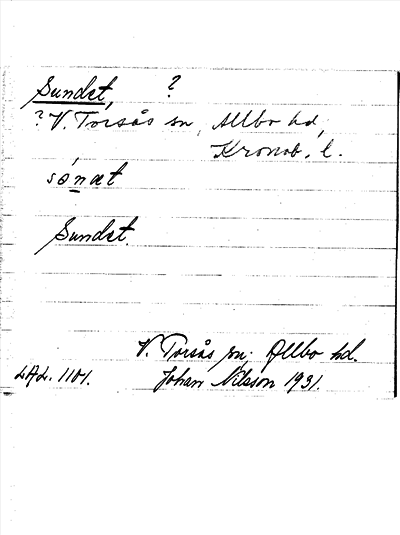 Sundet, ?
? V. Torsås sn, Allbo hd,
Kronob. l.
sónat
Sundet.
V. Torsås sn. Allbo hd.
LAL. 1101. Johan Nilsson 1931.